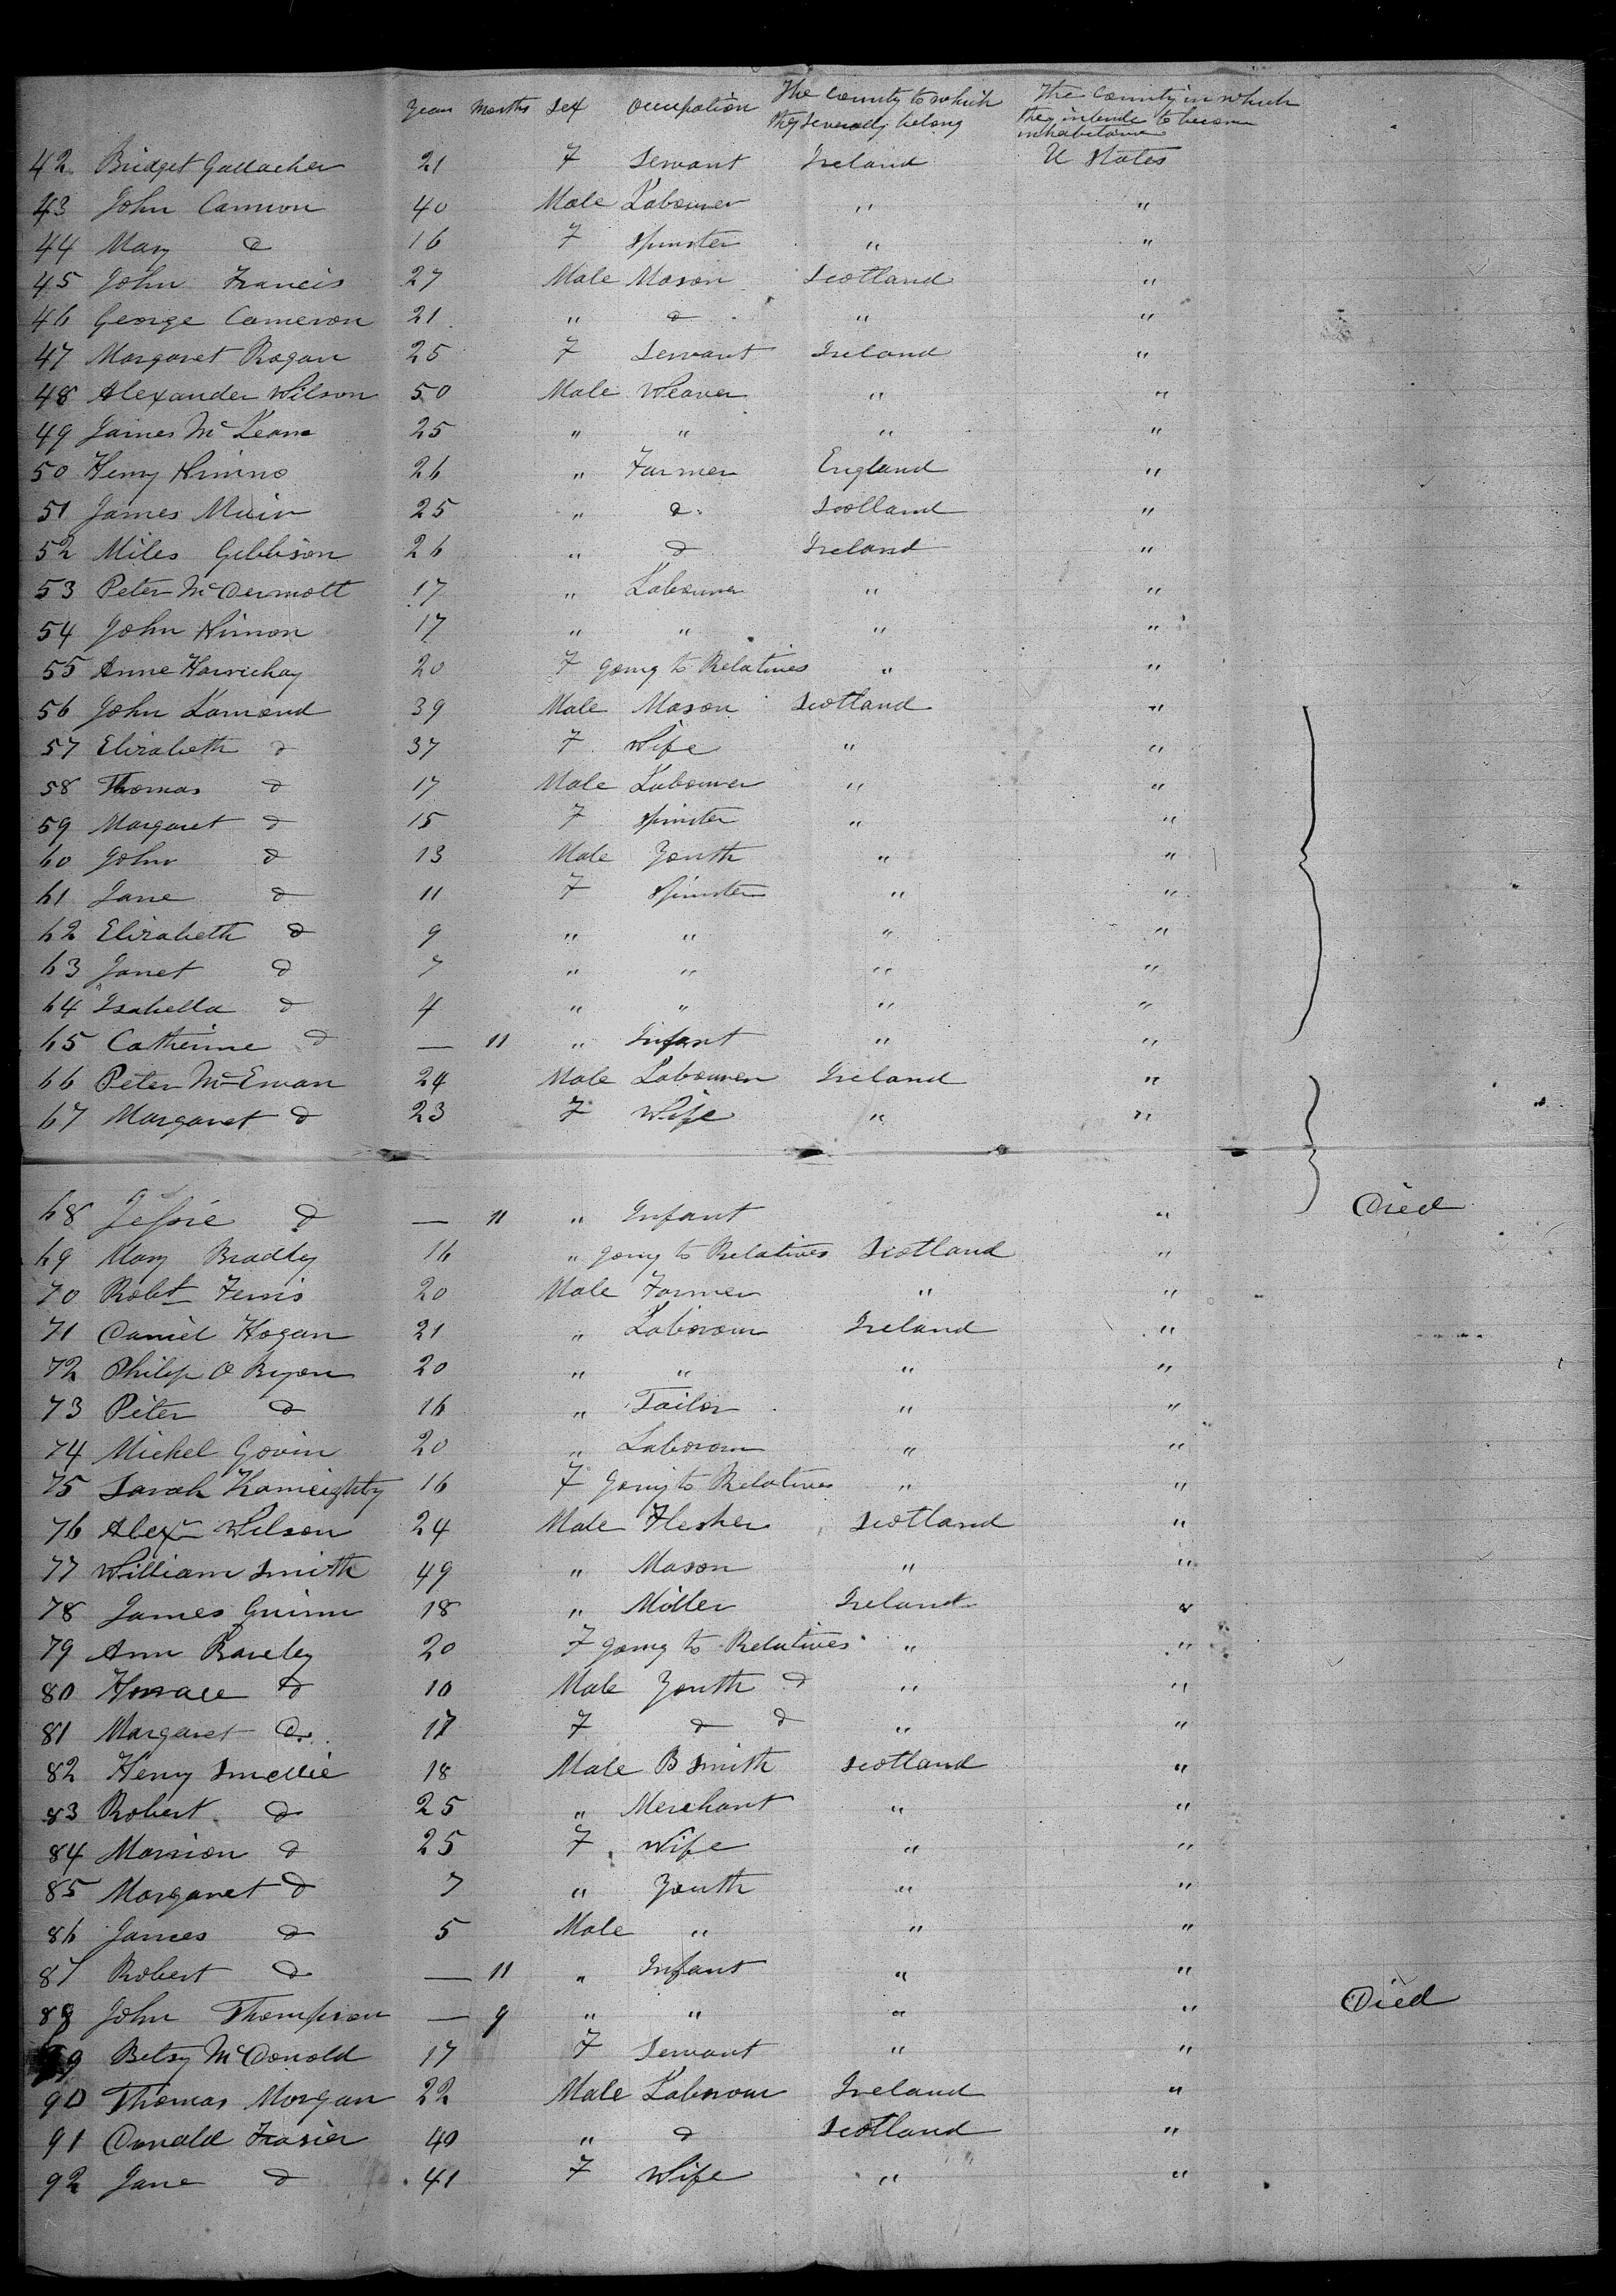 Years Months Sex Occupation The County to which they severally belong The County in which they intend to become inhabitants
42 Bridget Gallacher 21 F Servant Ireland U States
43 John Cannon 40 Male Labourer " "
44 Mary Do 16 F Spinster " "
45 John Francis 27 Male Mason Scotland "
46 George Cameron 21 " Do " "
47 Margaret Rogan 25 F Servant Ireland "
48 Alexander Wilson 50 Male Weaver " "
49 James McLean 25 " " " "
50 Henry 26 " Farmer England "
51 James Muir 25 " Do Scotland "
52 Miles Gibbison 26 " Do Ireland "
53 Peter McDermott 17 " Labourer " "
54 John 17 " " " "
55 Anne 20 F going to Relatives " "
56 John Lamond 39 Male Mason Scotland "
57 Elizabeth Do 37 F Wife " "
58 Thomas Do 17 Male Labourer " "
59 Margaret Do 15 F Spinster " "
60 John Do 13 Male Youth " "
61 Jane Do 11 F Spinster " "
62 Elizabeth Do 9 " " " "
63 Janet Do 7 " " " "
64 Isabella Do 4 " " " "
65 Catherine Do — 11 " Infant " "
66 Peter McEwan 24 Male Labourer Ireland "
67 Margaret Do 23 F Wife " "
68 Jessie Do — 11 " Infant " Died
69 Mary Bradley 16 " going to Relatives Scotland "
70 Robt Ferris 20 Male Farmer " "
71 Daniel Hogan 21 " Laborour Ireland "
72 Philip O Bryon 20 " " " "
73 Peter Do 16 " Tailor " "
74 Michel Govin 20 " Laborour " "
75 Sarah 16 F Going to Relatives " "
76 Alexr Wilson 24 Male Flesher Scotland "
77 William Smith 49 " Mason " "
78 James Guinn 18 " Miller Ireland "
79 Ann Baveley 20 F going to Relatives " "
80 Horrace Do 10 Male Youth Do " "
81 Margaret Do 17 F Do Do " "
82 Henry Smellie 18 Male B Smith Scotland "
83 Robert Do 25 " Merchant " "
84 Marrion Do 25 F Wife " "
85 Margaret Do 7 " Youth " "
86 James Do 5 Male " " "
87 Robert Do — 11 " Infant " "
88 John Thompson — 9 " " " " Died
89 Betsy McDonold 17 F Servant " "
90 Thomas Morgan 22 Male Laborour Ireland "
91 Donald Frasier 40 " Do Scotland "
92 Jane Do 41 F Wife " "